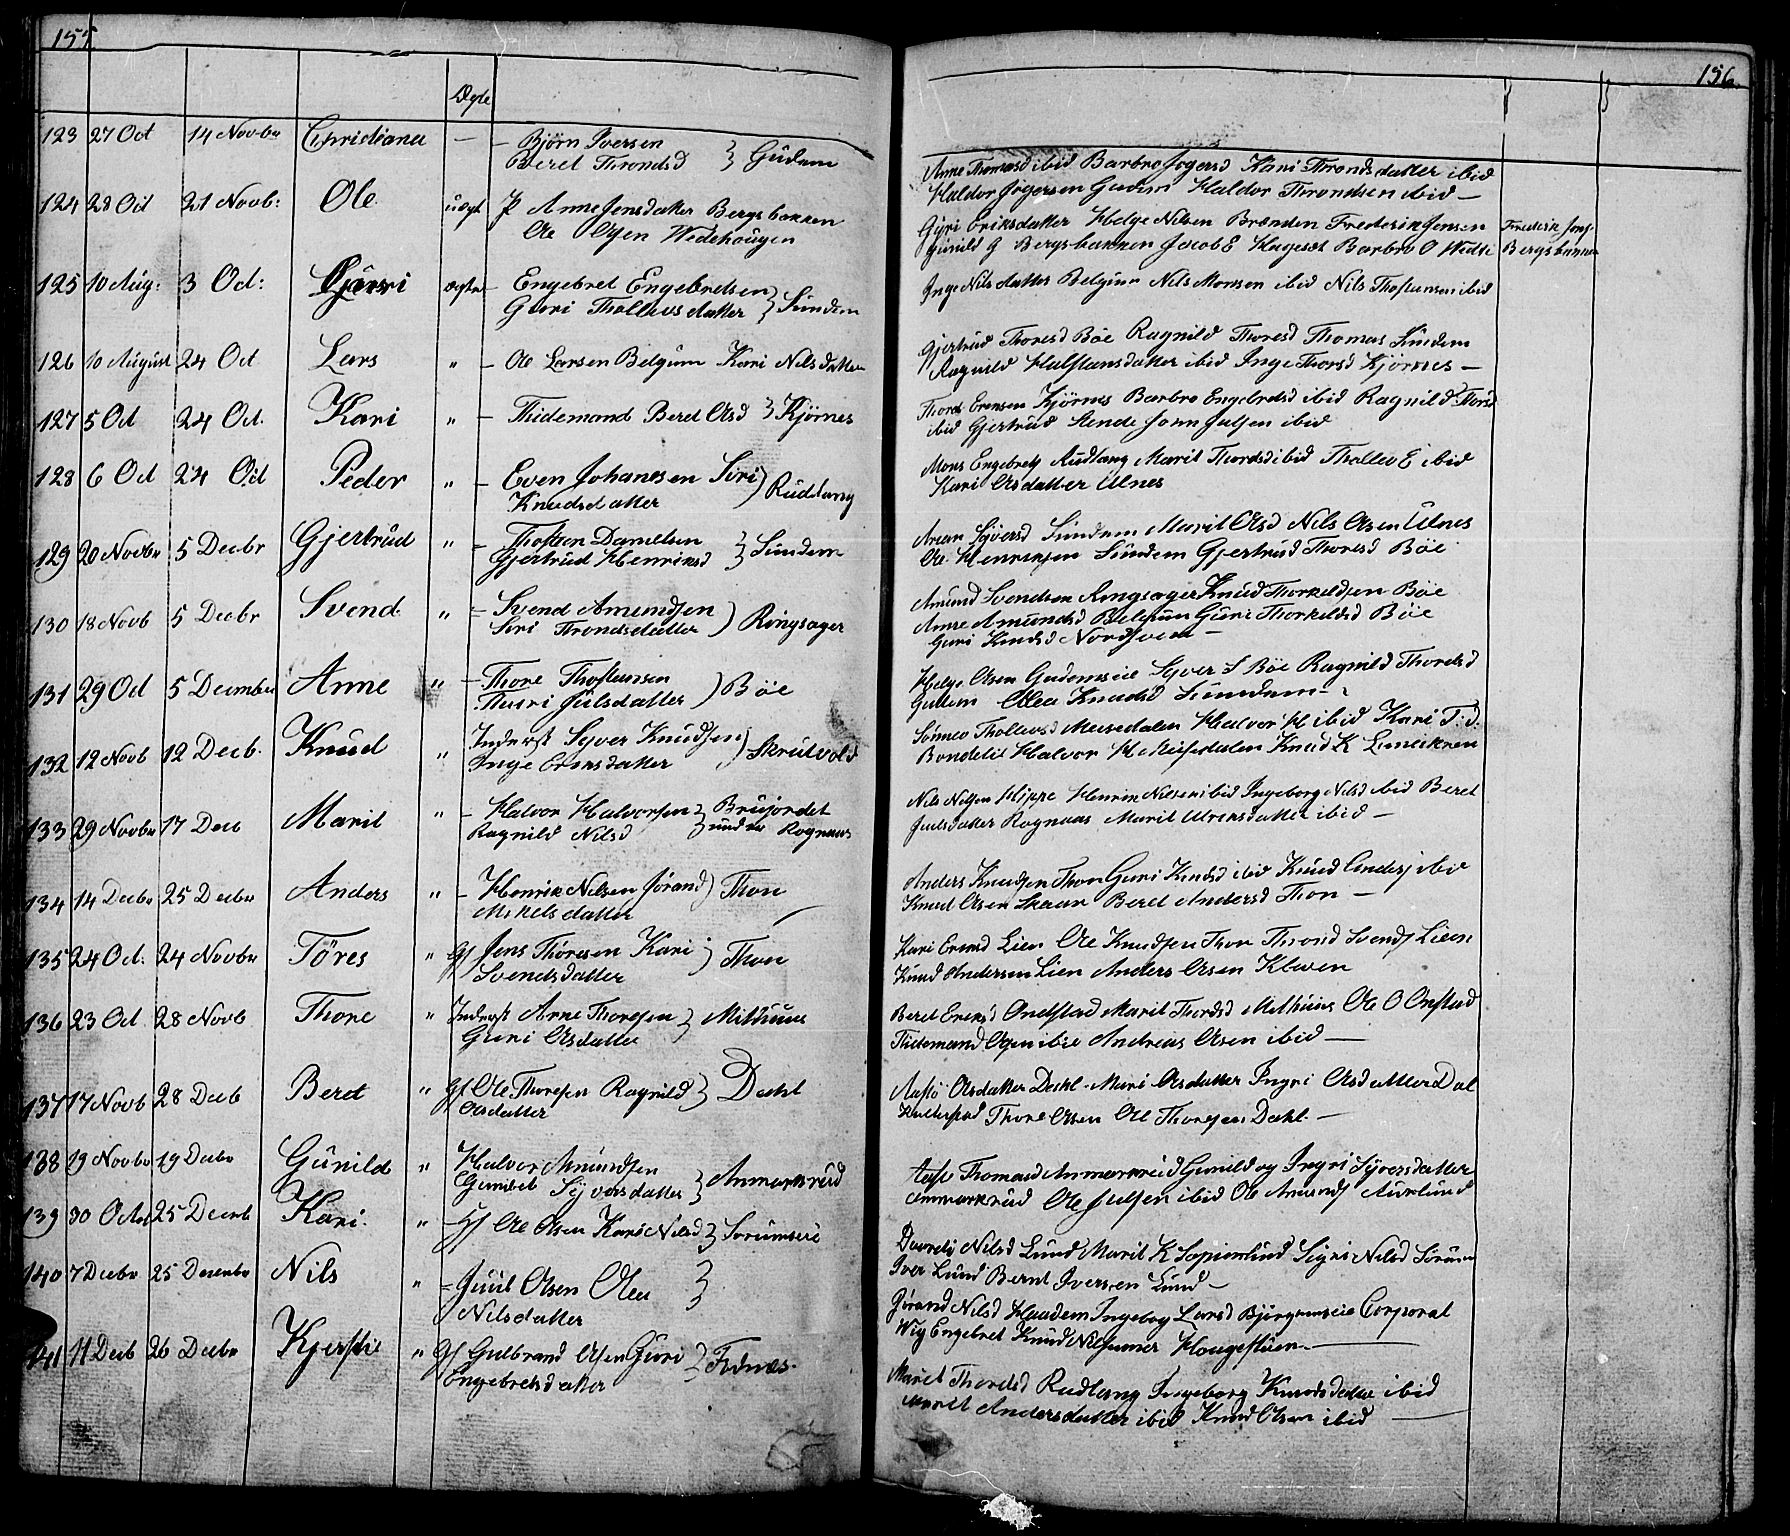 155
Ægte
123 27 Oct 14 Novbr Christiane — Bjørn Iversen
Beret Thronds d } Gudem
124 28 Oct 21 Novb: Ole uægt P Anne Jensdatter Bergsbakken
Ole Olsen Wedehougen
125 10 Aug: 3 Oct: Gjøri ægte Engebret Engebretsen
Guri Thollevsdatter } Sundem
126 10 August 24 Oct Lars " — Ole Larsen Belgum Kari Nilsdatter
127 5 Oct 24 Oct. Kari " — Thidemand Beret Olsd } Kjørnes
128 6 Oct 24 Oct Peder " — Even Johanesen Siri
Knudsdatter ) Rudlang
129 20 Novbr 5 Decbr Gjertrud " — Thosten Danielsen
Gjertrud Henriksd } Sundem
130 18 Novb 5 Decbr Svend " — Svend Amundsen
Siri Throndsdatter ) Ringsager
131 29 Oct 5 December Anne " — Thore Thostensen
Thuri Juulsdatter ) Bøe
132 12 Novb 12 Decb. Knud " Inderst Syver Knudsen
Inge Eriksdatter ) Skrutvold
133 29 Novbr 17 Dec Marit " — Halvor Halvorsen } Brujordet
Ragnild Nilsd } under Rognaas
134 14 Decbr 25 Decbr Anders " — Henrik Nilsen Jørand ) Thon
Mikelsdatter
135 24 Oct. 24 Novbr Töres " Gf Jens Thoresen Kari } Thon
Svendsdatter
136 23 Oct 28 Novb Thore " Inderst Arne Thoresen } Mithuus
Guri Olsdatter
137 17 Novb 28 Decb Beret " Gf Ole Thoresen Ragnild } Dahl
Olsdatter
138 19 Novbr 19 Decbr Gunild " Halvor Amundsen
Gunild Syversdatter } Anmarkrud
139 30 Octbr 25 Decmb Kari. " — Hf Ole Olsen Kari Nilsd } Sorumeie
140 7 Decbr 25 Decembr Nils " — Juul Olsen Olea }
Nilsdatter
141 11 Decb 26 Decbr Kjerstie " Gf Gulbrand Olsen Guri } Fodnæs.
Engebretsdatter
156.
Anne Thomasd ibid Barbro Jogersd Kari Throndsdatter ibid
Haldor Jogersen Gudem Haldor Throndsen ibid —
Gyri Eriksdatter Helge Nilsen Brænden Frederik Jensen Frederik Jens
Gunild G Bergsbakken Jacob E Hageset Barbro O Wedh Bergsbakken
Inge Nilsdatter Belgum Nils Monsen ibid Nils Thostensen ibid
Gjertrud Thoresd Bøe Ragnild Thoresd Thomas Sundem
Ragnild Halstensdatter ibid Inge Thorsd Kjørnes —
Thord Evensen Kjørnes Barbro Engebretsd ibid Ragnild Thord
ibid Gjertrud Stende John Julsen ibid
Mons Engebrets Rudlang Marit Thordsd ibid Thollev E ibid
Kari Olsdatter Ulnes
Syversd Sundem Marit Olsd Nils Olsen Ulnes
Ole Henriksen Sundem Gjertrud Thoresd Bøe
Amund Svendsen Ringsager Knud Thorkeldsen Bøe
Anne Amundsd Belgum Guri Thorkeldsd Bøe
Guri Knudsd Nordsveen —
Helge Olsen Gudemseie Syver S Bøe Ragnild Thordsd
Gudem Olea Knudsd Sundem —
Thollevsd Musedalen Halvor H ibid Kari T: d.
Bondelie Halvor H Musedalen Knud K
Nils Nilsen Hippe Henrik Nilsen ibid Ingeborg Nilsd ibid Beret
Juulsdatter Rognaas Marit Ulriksdatter ibid —
Anders Knudsen Thon Guri Knudsd ibid Knud Anders ibid
Knud Olsen Skaar Beret Andersd Thon —
Kari Eriksd Lien Ole Knudsen Thon Thrond Svends Lien
Knud Andersen Lien Anders Olsen Kleven
Beret Eriksd Onstad Marit Thordsd Mithuus Ole O Onstad
Thidemand Olsen ibid Andreas Olsen ibid —
Aase Olsdatter Dahl Mari Olsdatter Ingri Olsdatter Dal
Thore Olsen Ole Thoresen Dahl —
Aase Thomasd Anmarkrud Gunild og Ingri Syversdatter
Anmarkrud Ole Julsen ibid Ole Amunds Aurlund
Dordi Nilsd Lund Marit K Sigri Nilsd Sorum
Iver Lund Bernt Iversen Lund —
Jørand Nilsd Haadem Ingeborg Larsd Corporal
Wig Engebret Knud Haugestuen —
Marit Thordsd Rudlang Ingeborg Knudsdatter ibid
Marit Andersdatter ibid Knud Olsen ibid —